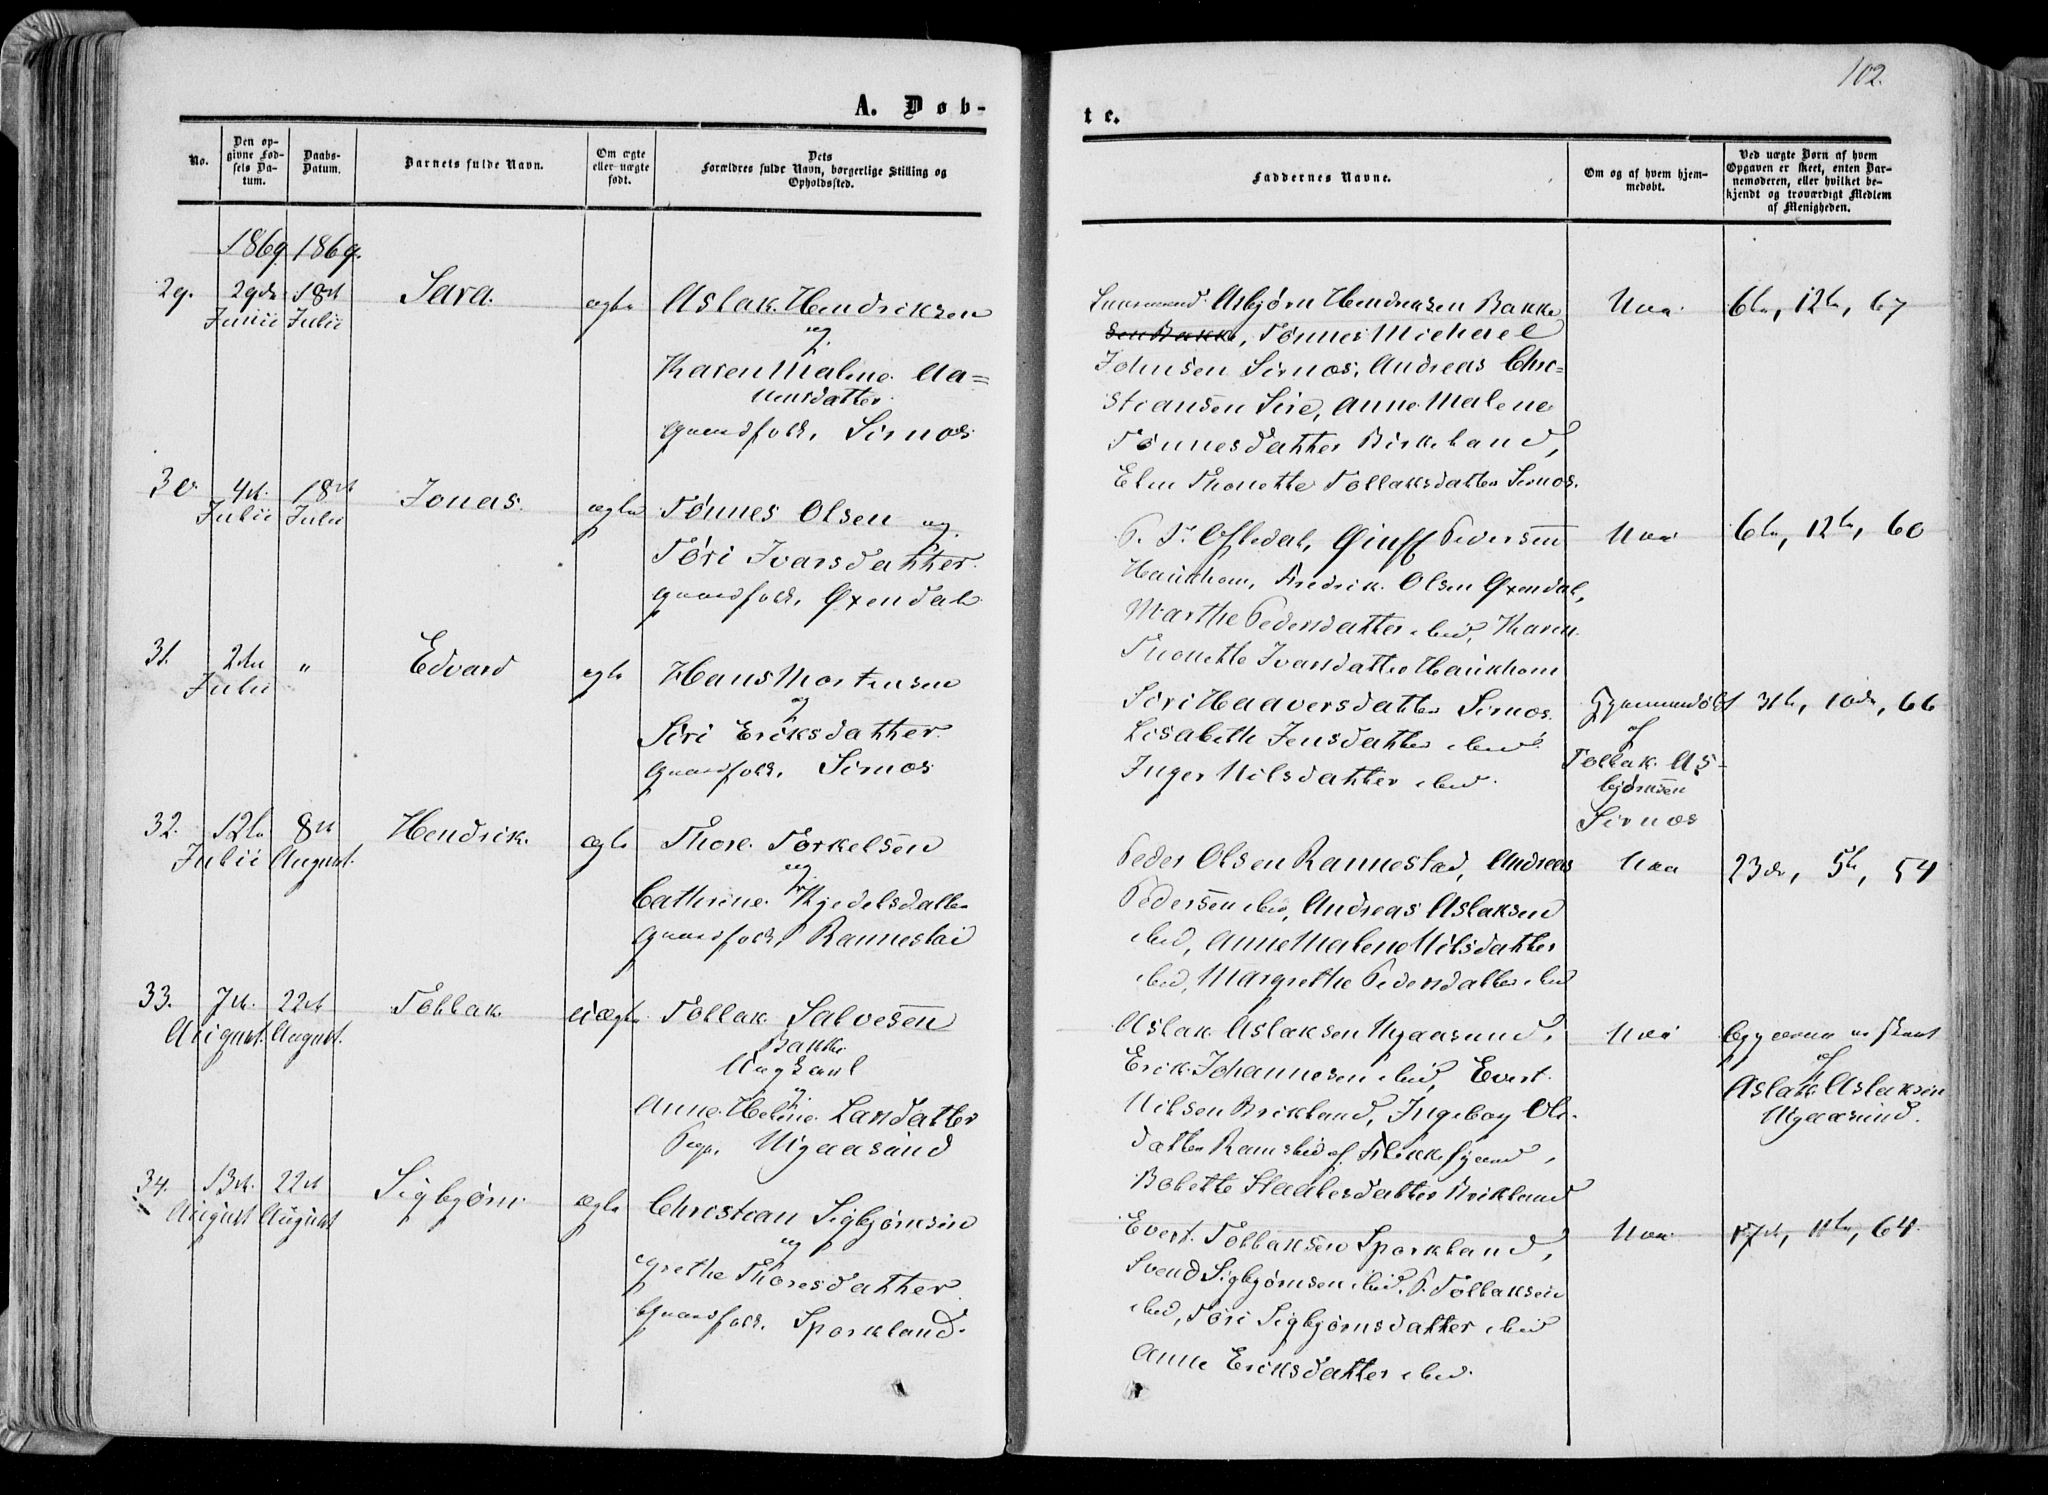 102.
A. Døb-
te.
No.
Den op-
givne Fød-
sels Da-
tum.
Daabs-
Datum.
Barnets fulde Navn.
Om ægte
eller uægte
født.
Dets
Forældres fulde Navn, borgerlige Stilling og
Opholdssted.
Faddernes Navne.
Om og af hvem hjem-
medøbt.
Ved uægte Børn af hvem
Opgaven er skeet, enten Bar-
nemoderen, eller hvilket be-
kjendt og troværdigt Medlem
af Menigheden.
1869. 1869.
29.
29de
Junii
18de
Julii
Sara.
ægte
Aslak Hendriksen
og
Karen Malene Aa=
nensdatter
Gaardfolk, Sirnes
Asbjørn Hendriksen Bakke
sen Bakke, Tønnes Michael
Johnsen Sirnes, Andreas Chri=
stiansen Sire, Anne Malene
Tønnesdatter Birkeland,
Elen Thonette Tollaksdatter Sirnes.
Nei
6te, 12te, 67
30.
4de
Julii
18de
Julii
Jonas.
ægte
Tønnes Olsen og
Tøri Ivarsdatter
Gaardfolk, Øxendal
Pedersen
Haukhom, Fredrik Olsen Øxendal,
Marthe Pedersdatter ibid, Karen
Thonette Ivarsdatter Haukhom
Nei
6te, 12te, 60
31.
2den
Julii
"
Edvard
ægte
Hans Mortensen
og
Siri Eriksdatter
Gaardfolk, Sirnes
Siri Haaversdatter Sirnes.
Lisabeth Jensdatter ibid
Inger Nilsdatter ibid.
Hjemmedøbt
af
Tollak As-
bjørnsen
Sirnes
3die, 10de, 66
32.
12te
Julii
8de
August.
Hendrik.
ægte
Thore Torkelsen
og
Cathrine Kjedelsdatter
Gaardfolk, Rannestad
Peder Olsen Rannestad, Andreas
Pedersen ibid, Andreas Aslaksen
ibid, Anne Malene Nilsdatter
ibid, Margrethe Pedersdatter ibid
Nei
23de, 5te, 54
33.
7de
August.
22de
August.
Tollak
uægte
Tollak Salvesen
Bakke
Ungkarl
og
Anne Helene Larsdatter
Pige, Aagaasund
Aslak Aslaksen Aagaasund,
Erik Johannesen ibid, Evert
Nilsen Birkeland, Ingeborg Ols-
datter Ramslid af Flekkefjord,
Bolette Staalesdatter Birkeland
Nei
af
Aslak Aslaksen
Aagaasund.
34.
13de
August
22de
August
Sigbjørn.
ægte
Christian Sigbjørnsen
og
Grethe Thoresdatter
Gaardfolk, Sporkland.
Evert Tollaksen Sporkland,
Svend Sigbjørnsen ibid, P. Tollaksen
ibid, Tøri Sigbjørnsdatter ibid
Anne Eriksdatter ibid.
Nei
17de, 11te, 64.